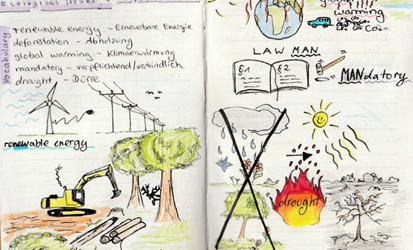 Ecological issues
Vocabulary
renewable energy - Erneuerbare Energie
deforestation - Abholzung
global warming - Klimaerwärmung
mandatory - verpflichtend/verbindlich
drought - Dürre
renewable energy
global
warming
CO2
LAW MAN
§1 §2
MANdatory
drought